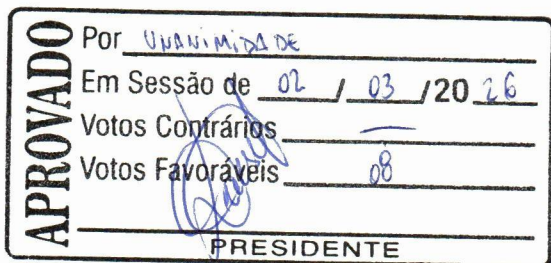 APROVADO
Por UNANIMIDADE
Em Sessão de 02 / 03 /20 26
Votos Contrários —
Votos Favoráveis 08
PRESIDENTE